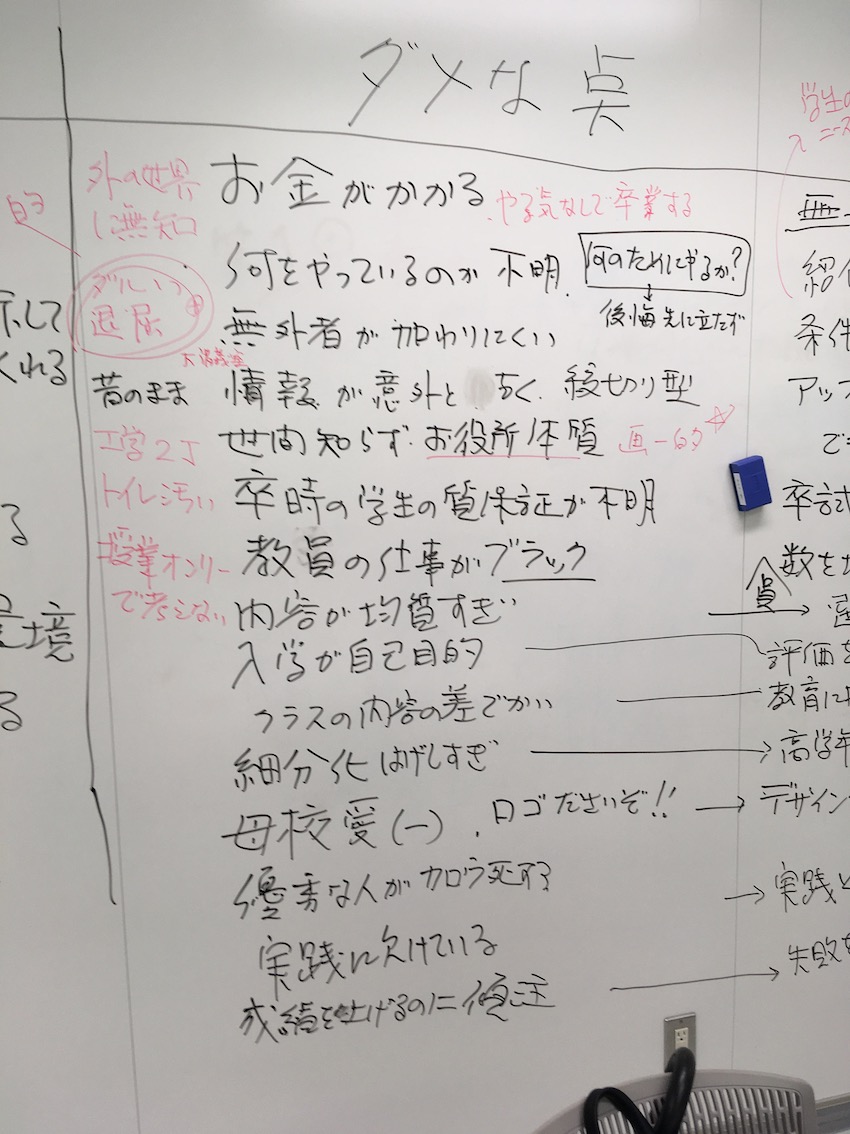 ダメな点
学生の
ニーズ
外の世界
に無知
お金がかかる
やる気なしで卒業する
的
何をやっているのか不明.
何のためにやるか?
後悔先に立たず
紹介
ダルいっ
退屈
示して
くれる
無外者が加わりにくい
条件
昔のまま
情報が意外と 古く、縦切り型
アップ
でき
工学2J
世間知らず お役所体質
画一的
トイレ汚い
卒時の学生の質保証が不明
卒試
る
授業オンリー
で考えない
教員の仕事がブラック
数を
員
内容が均質すぎ
環境
入学が自己目的
評価を
る
クラスの内容の差でかい
教育に
細分化はげしすぎ
高学年
母校愛(一). ロゴださいぞ!!
デザイン
優秀な人がカロウ死する
実践と
実践に欠けている
失敗を
成績を上げるのに傾注